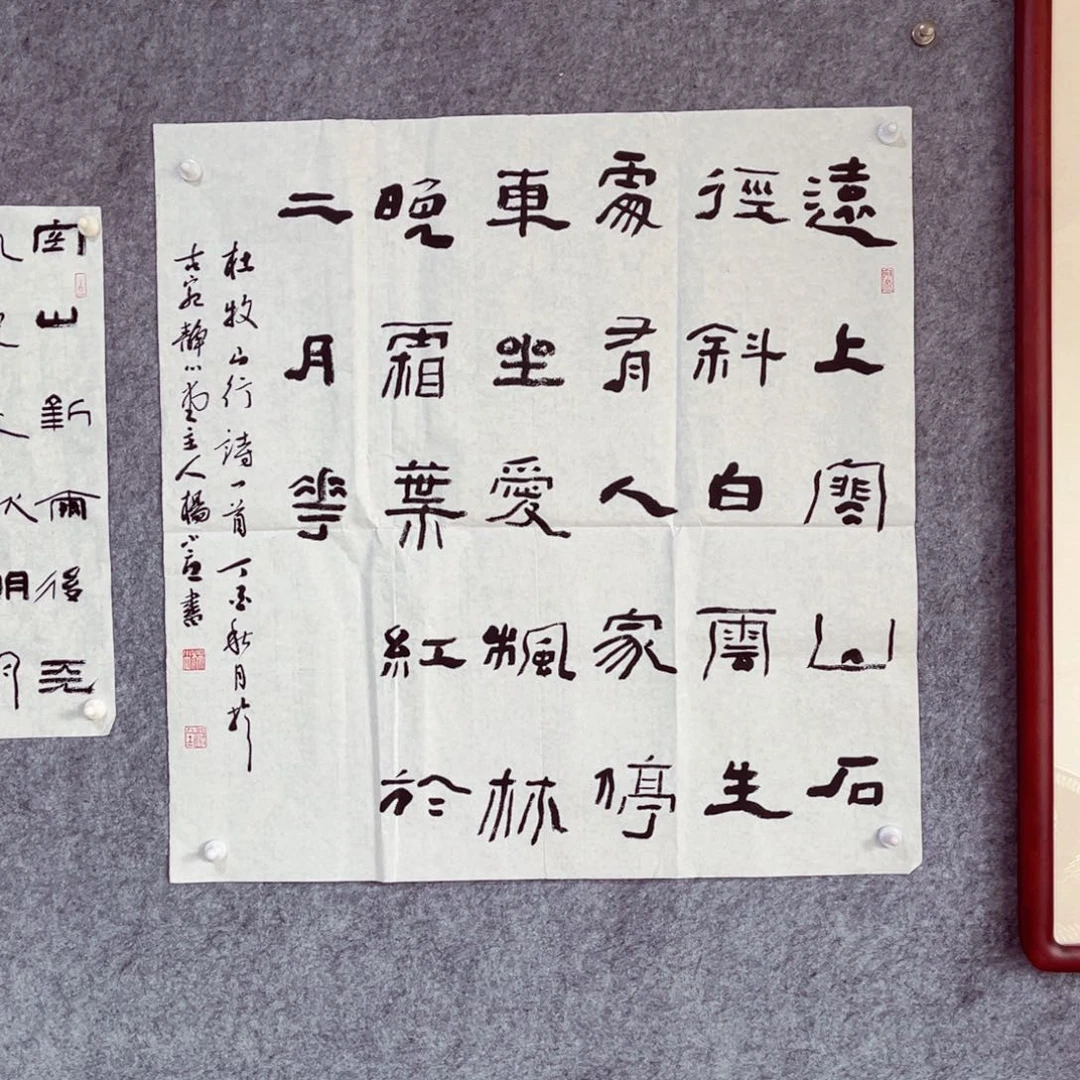 遠上寒山石
徑斜白雲生
處有人家停
車坐愛楓林
晚霜葉紅於
二月華
杜牧山行詩一首 丁酉秋月於
古宛靜心堂主人楊書
空山新雨後
明